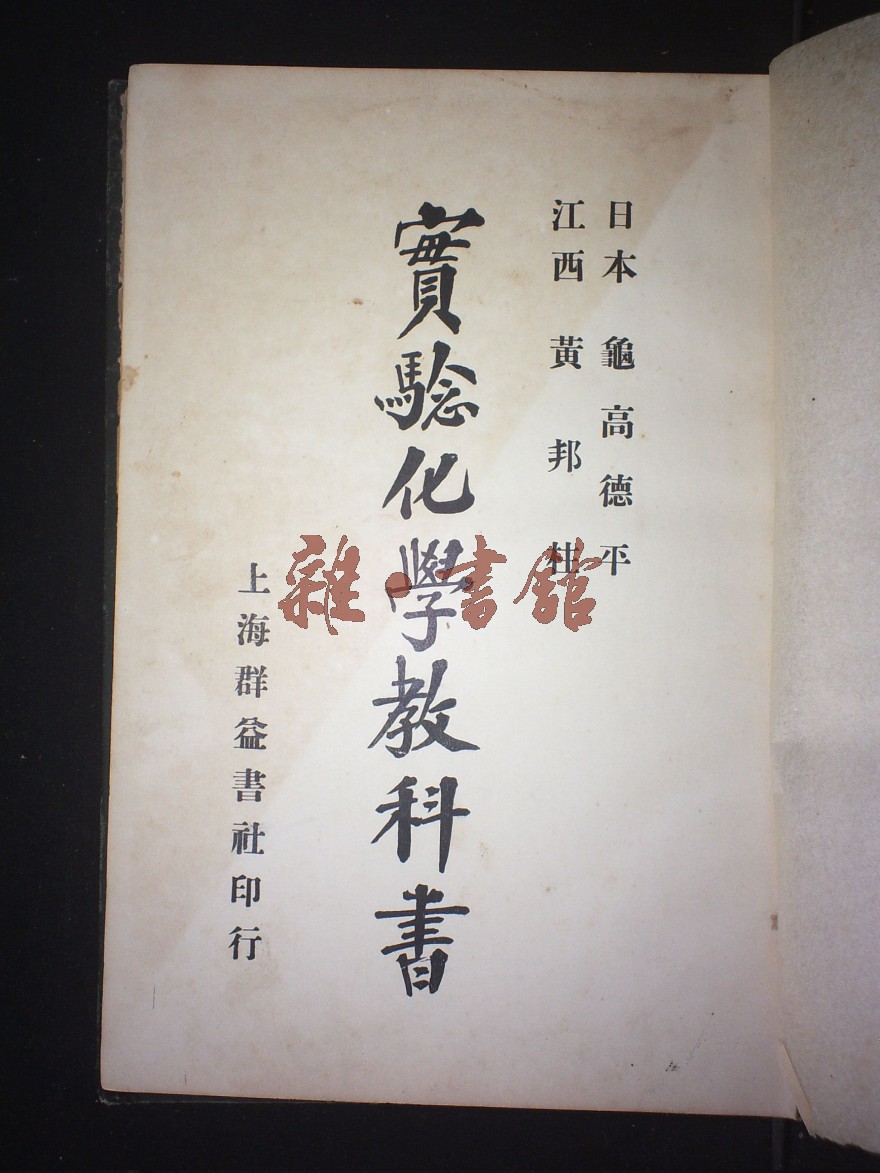 日本 龜高德平
江西 黃邦柱
實驗化學教科書
上海群益書社印行
雜·書館